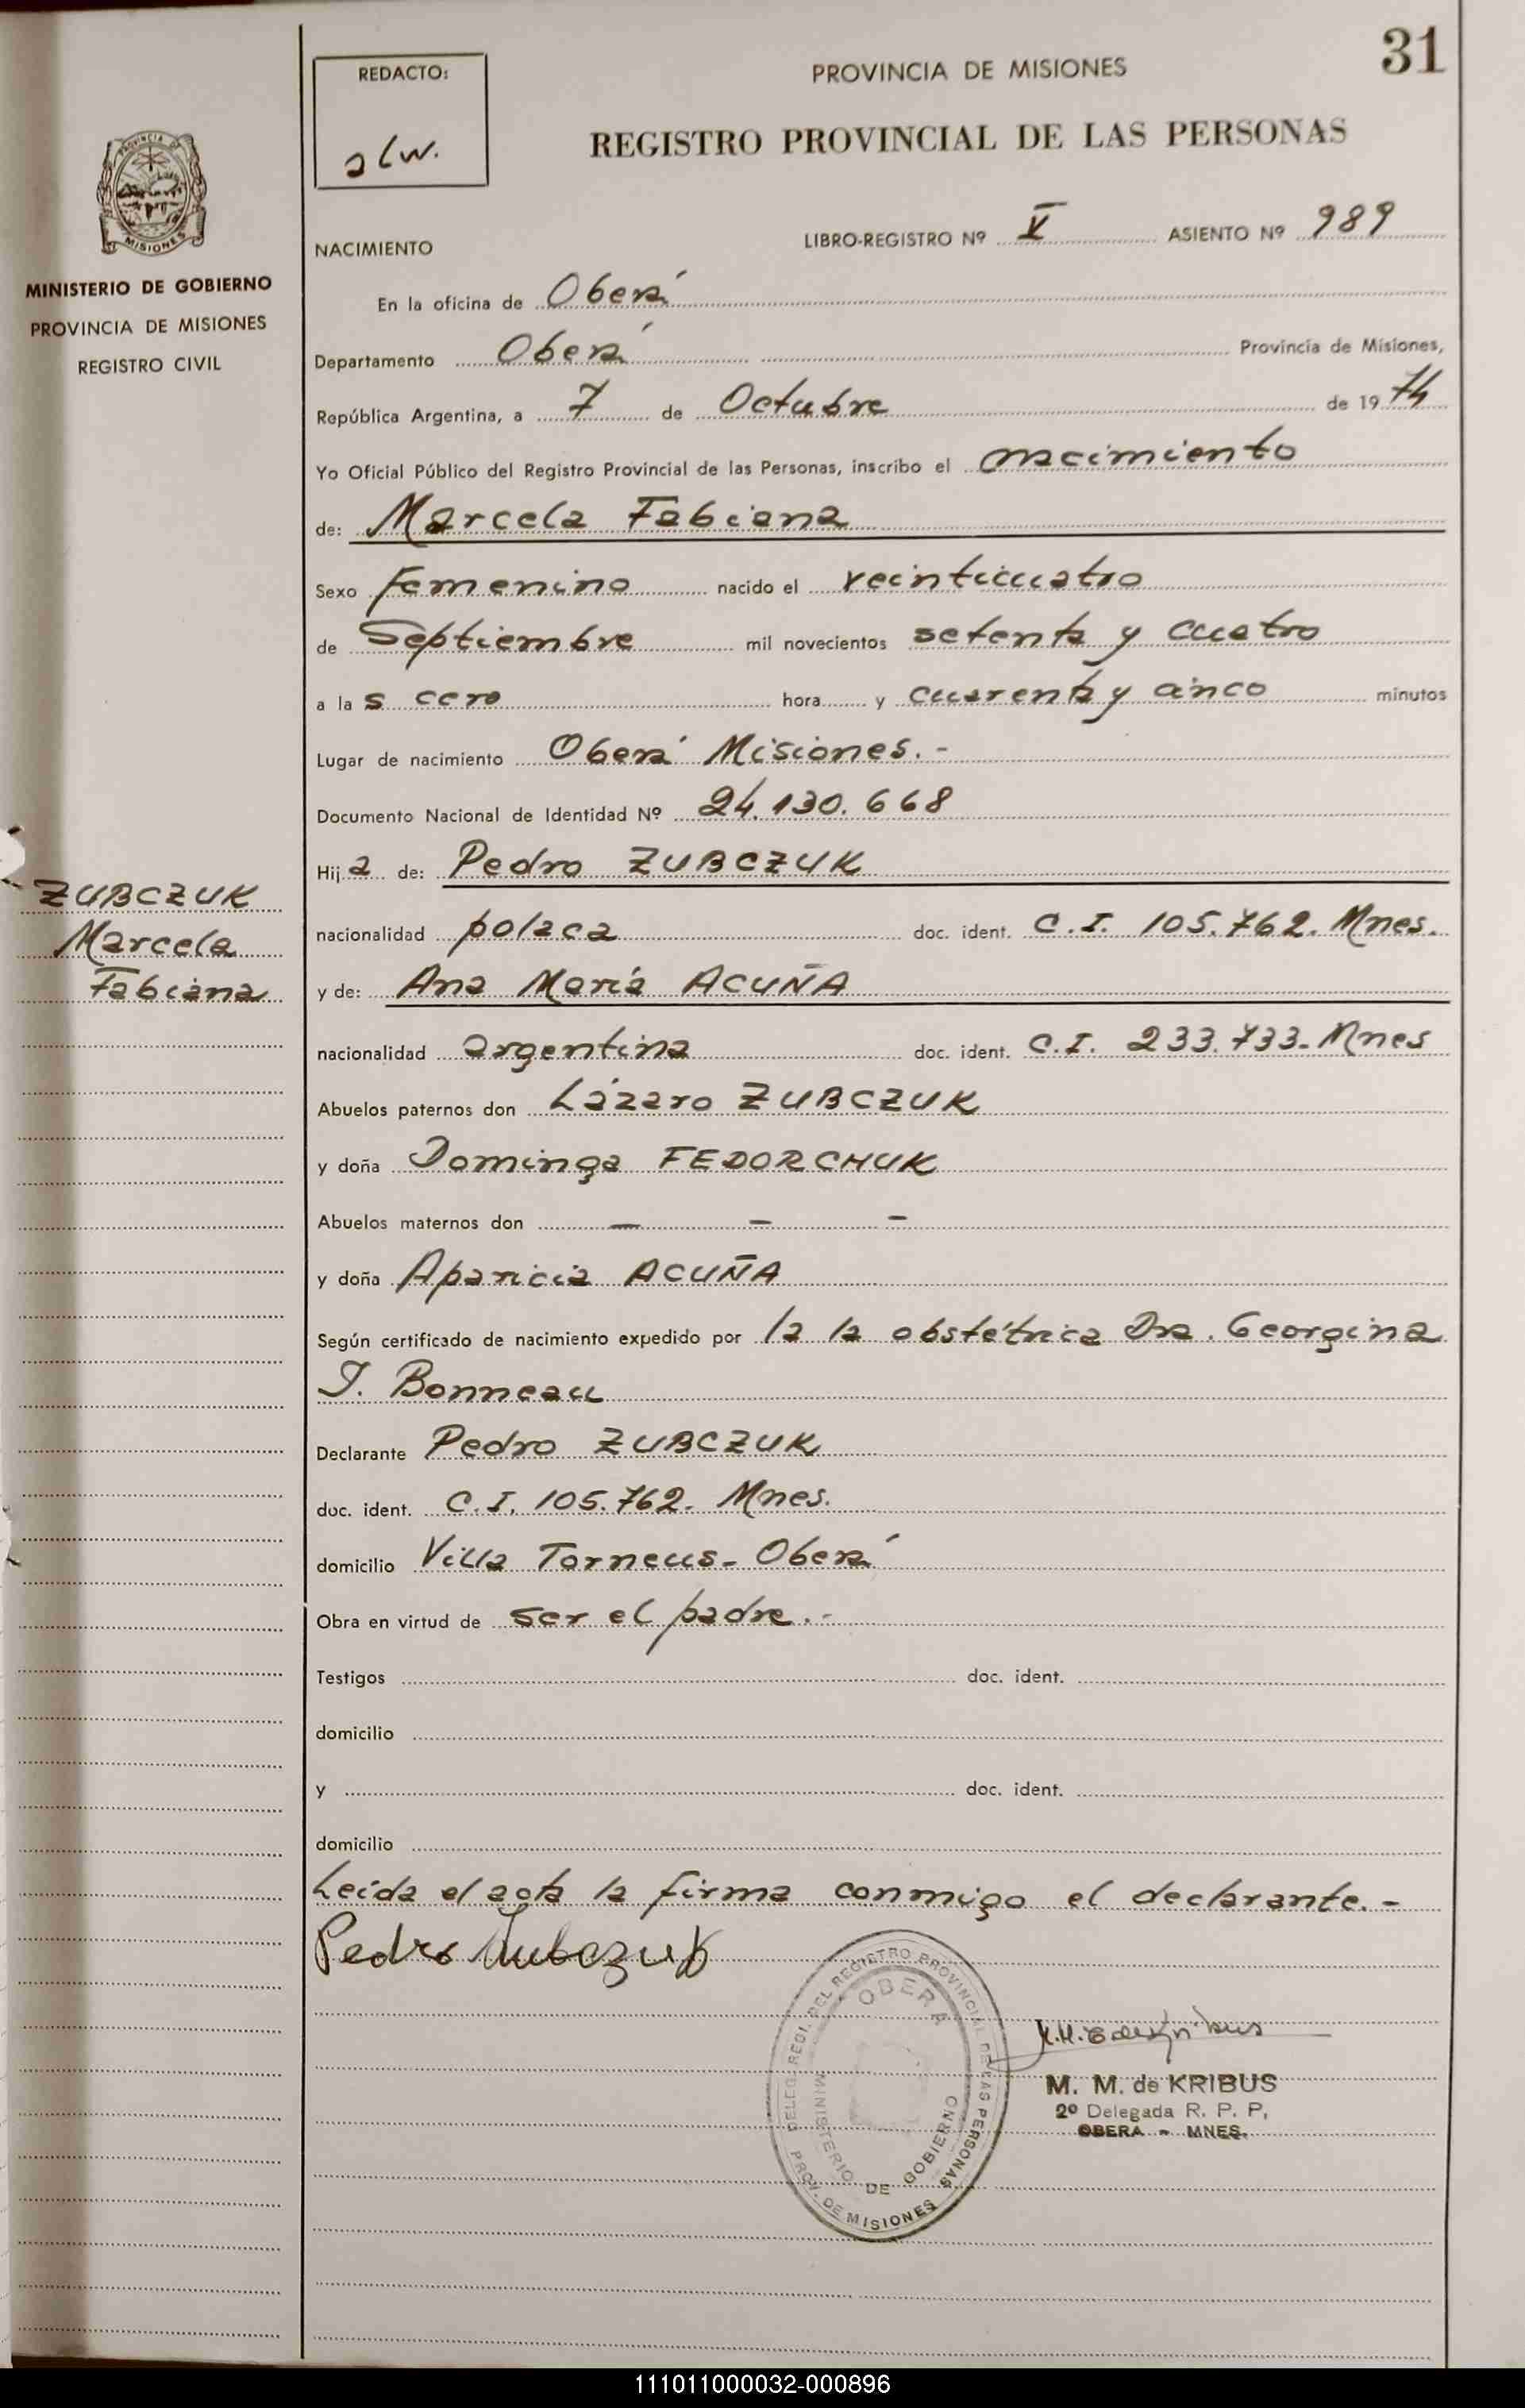 31
REDACTO:
alw.
PROVINCIA DE MISIONES
REGISTRO PROVINCIAL DE LAS PERSONAS
PROVINCIA DE
MISIONES
MINISTERIO DE GOBIERNO
PROVINCIA DE MISIONES
REGISTRO CIVIL
NACIMIENTO
LIBRO-REGISTRO Nº V ASIENTO Nº 989
En la oficina de Oberá
Departamento Oberá Provincia de Misiones,
República Argentina, a 7 de Octubre de 1974
Yo Oficial Público del Registro Provincial de las Personas, inscribo el nacimiento
de: Marcela Fabiana
Sexo Femenino nacido el veinticuatro
de Septiembre mil novecientos setenta y cuatro
a las cero hora y cuarenta y cinco minutos
Lugar de nacimiento Oberá Misiones.-
Documento Nacional de Identidad Nº 24.130.668
Hija de: Pedro ZUBCZUK
ZUBCZUK
Marcela
Fabiana
nacionalidad polaca doc. ident. C.I. 105.762. Mnes.
y de: Ana María ACUÑA
nacionalidad argentina doc. ident. C.I. 233.733- Mnes
Abuelos paternos don Lázaro ZUBCZUK
y doña Dominga FEDORCHUK
Abuelos maternos don — — —
y doña Aparicia ACUÑA
Según certificado de nacimiento expedido por la la obstétrica Dra. Georgina
J. Bonneau
Declarante Pedro ZUBCZUK
doc. ident. C.I. 105.762. Mnes.
domicilio Villa Torneus- Oberá
Obra en virtud de ser el padre.-
Testigos doc. ident.
domicilio
y doc. ident.
domicilio
Leída el acta la firma conmigo el declarante.-
Pedro Zubczuk
DELEG. REGI. DEL REGISTRO PROVINCIAL DE LAS PERSONAS
OBERA
MINISTERIO DE GOBIERNO
PROV. DE MISIONES
M. M. de KRIBUS
2º Delegada R. P. P,
OBERA - MNES.
111011000032-000896